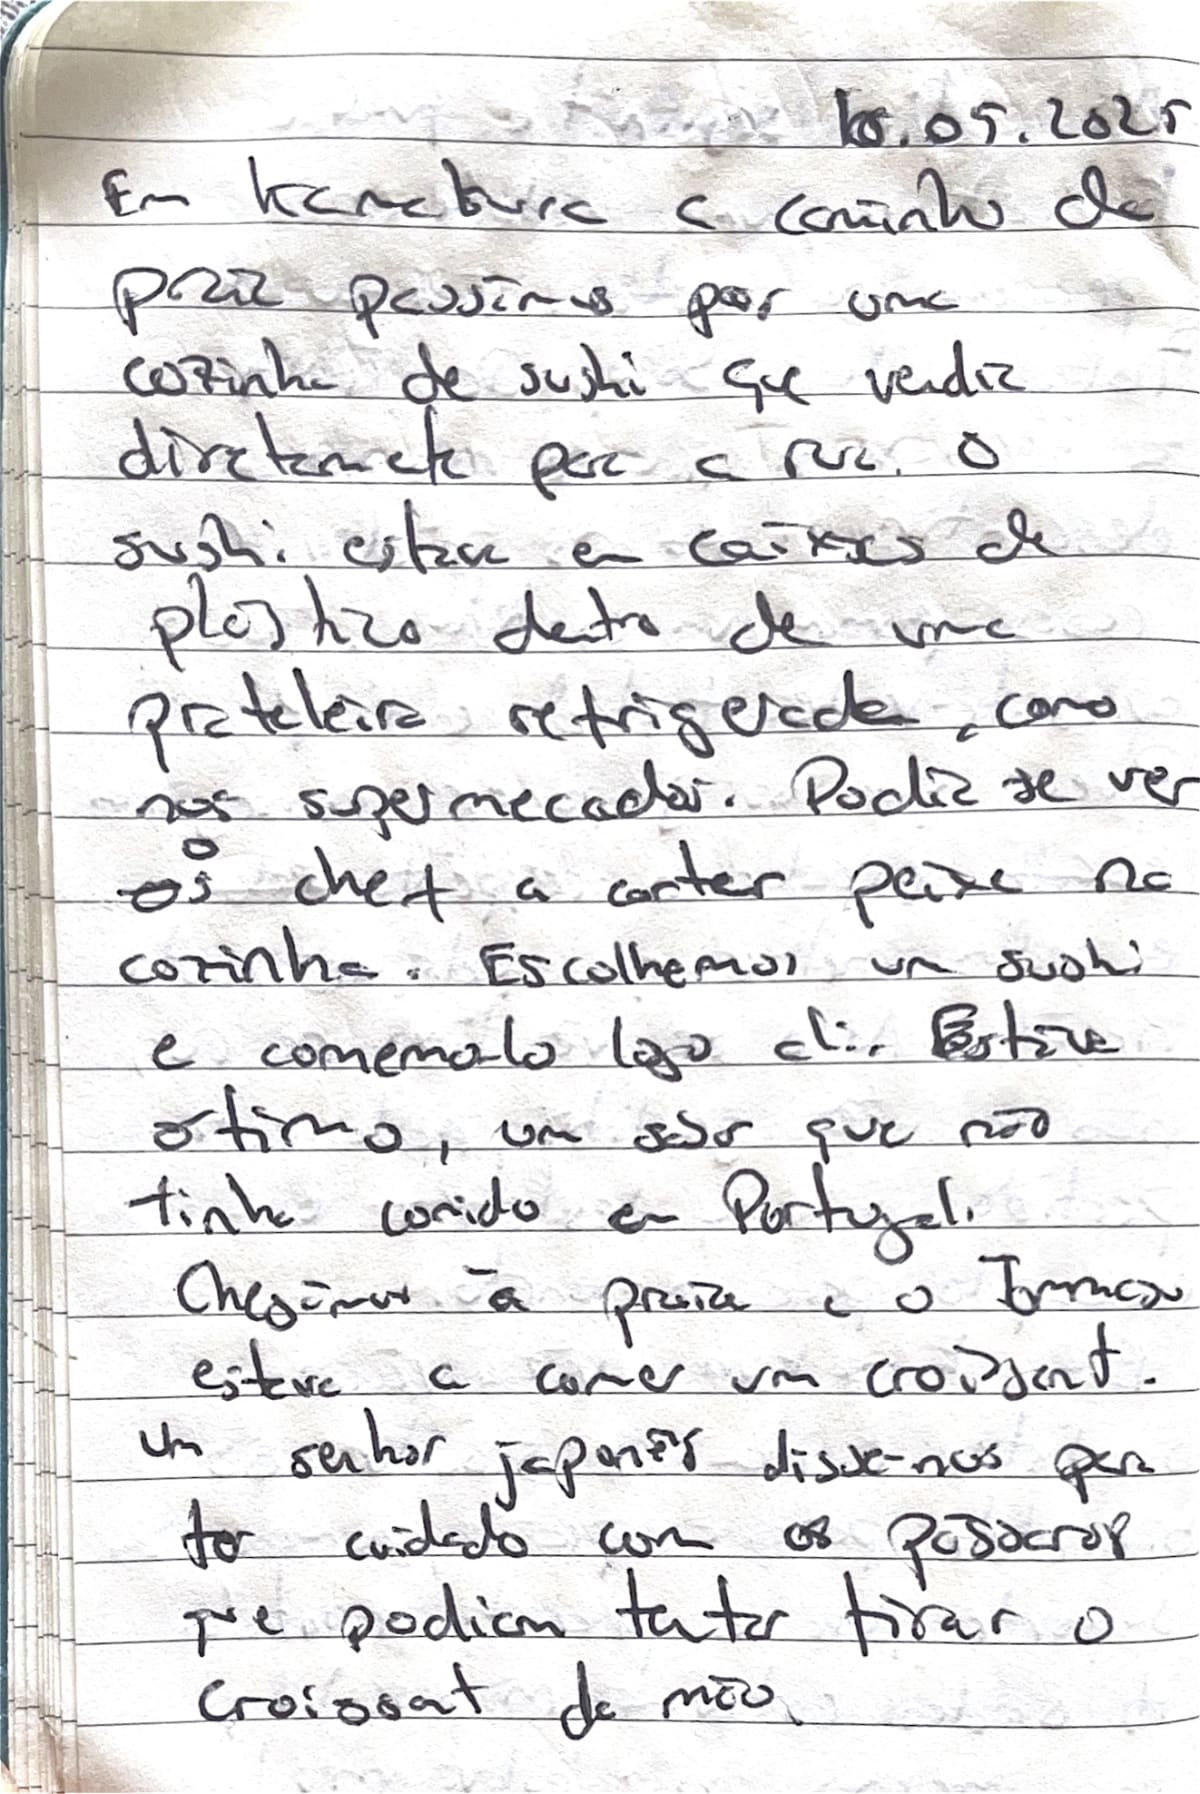 .05.2025
Em Kamakura a caminho da
praia passámos por uma
cozinha de sushi que vendia
diretamente para a rua. O
sushi estava em caixas de
plástico dentro de uma
prateleira refrigerada, como
nos supermecados. Podia se ver
o chef a cortar peixe na
cozinha. Escolhemos um sushi
e comemo-lo logo ali. Estava
ótimo, um sabor que não
tinha comido em Portugal.
Chegámos à praia e o
estava a comer um croissant.
Um senhor japonês disse-nos para
ter cuidado com os pássaros
que podiam tentar tirar o
croissant da mão.